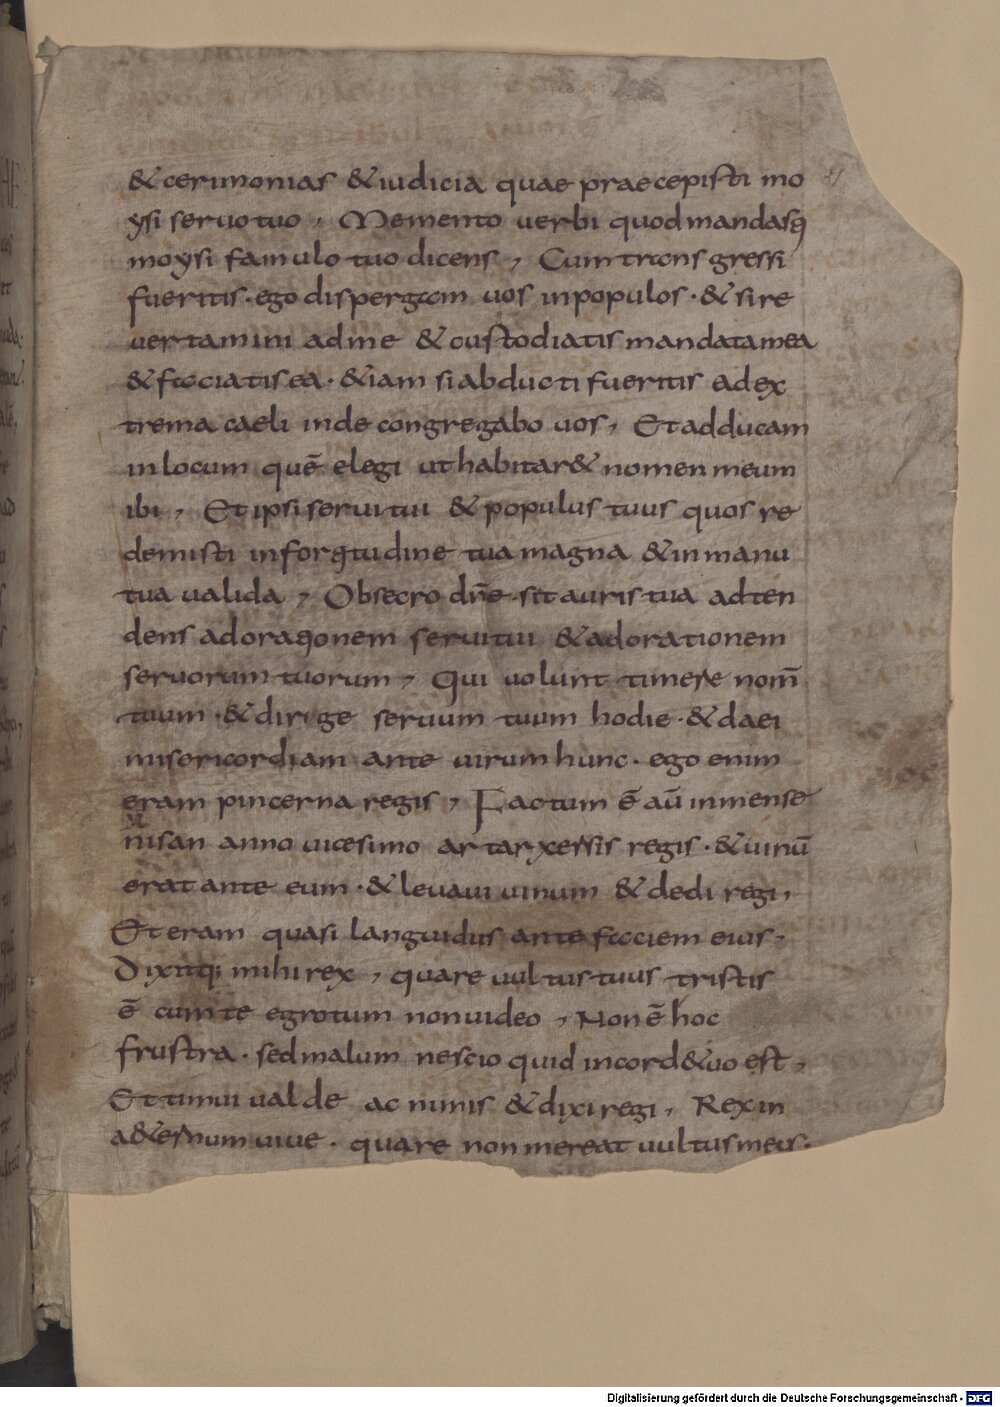 & cerimonias & iudicia quae praecepisti mo
ysi seruo tuo, Memento uerbi quod mandasq
moysi famulo tuo dicens, Cum trans gressi
fueritis · ego dispergam uos in populos · & si re
uertamini ad me & custodiatis mandata mea
& faciatis ea · & iam si abducti fueritis ad ex
trema caeli inde congregabo uos, Et adducam
in locum quē elegi ut habitar& nomen meum
ibi, Et ipsi serui tui & populus tuus quos re
demisti in forqtudine tua magna & in manu
tua ualida, Obsecro dn̄e · sit auris tua adten
dens ad oraqonem serui tui & adorationem
seruorum tuorum, Qui uolunt timere nom̄
tuum · & dirige seruum tuum hodie · & da ei
misericordiam ante uirum hunc · ego enim
eram pincerna regis, Factum ē aū in mense
nisan anno uicesimo artarxersis regis · & uinū
erat ante eum · & leuaui uinum & dedi regi,
Et eram quasi languidus ante faciem eius,
Dixitq; mihi rex, quare uultus tuus tristis
ē cum te egrotum non uideo, Non ē hoc
frustra · sed malum nescio quid in cord& uo est,
Et timui ualde ac nimis & dixi regi, Rex in
a&ernum uiue · quare non mereat uultus meus ·
Digitalisierung gefördert durch die Deutsche Forschungsgemeinschaft - DFG